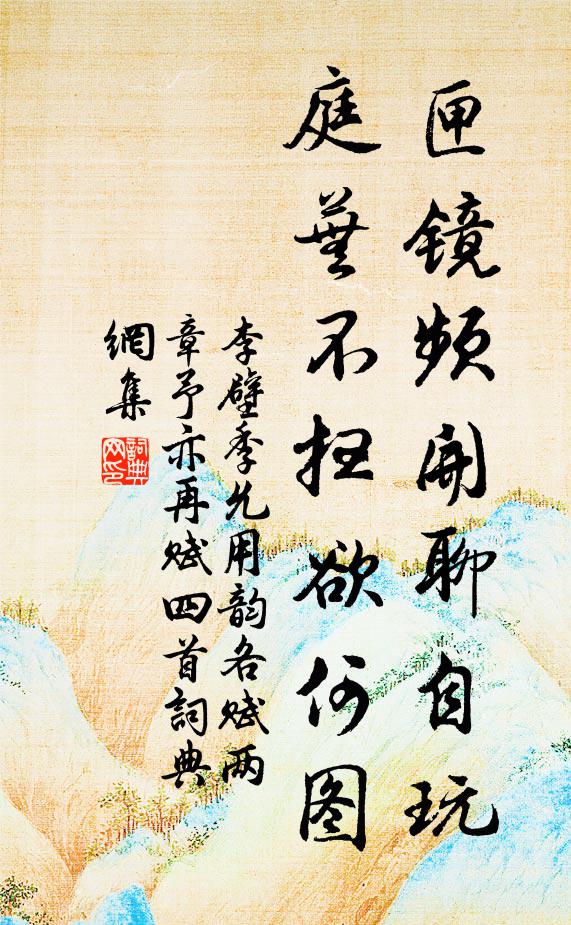 匣镜频开聊自玩
庭芜不扫欲何图
李壁季允用韵各赋两
章予亦再赋四首詞典
網集
詞典
网印